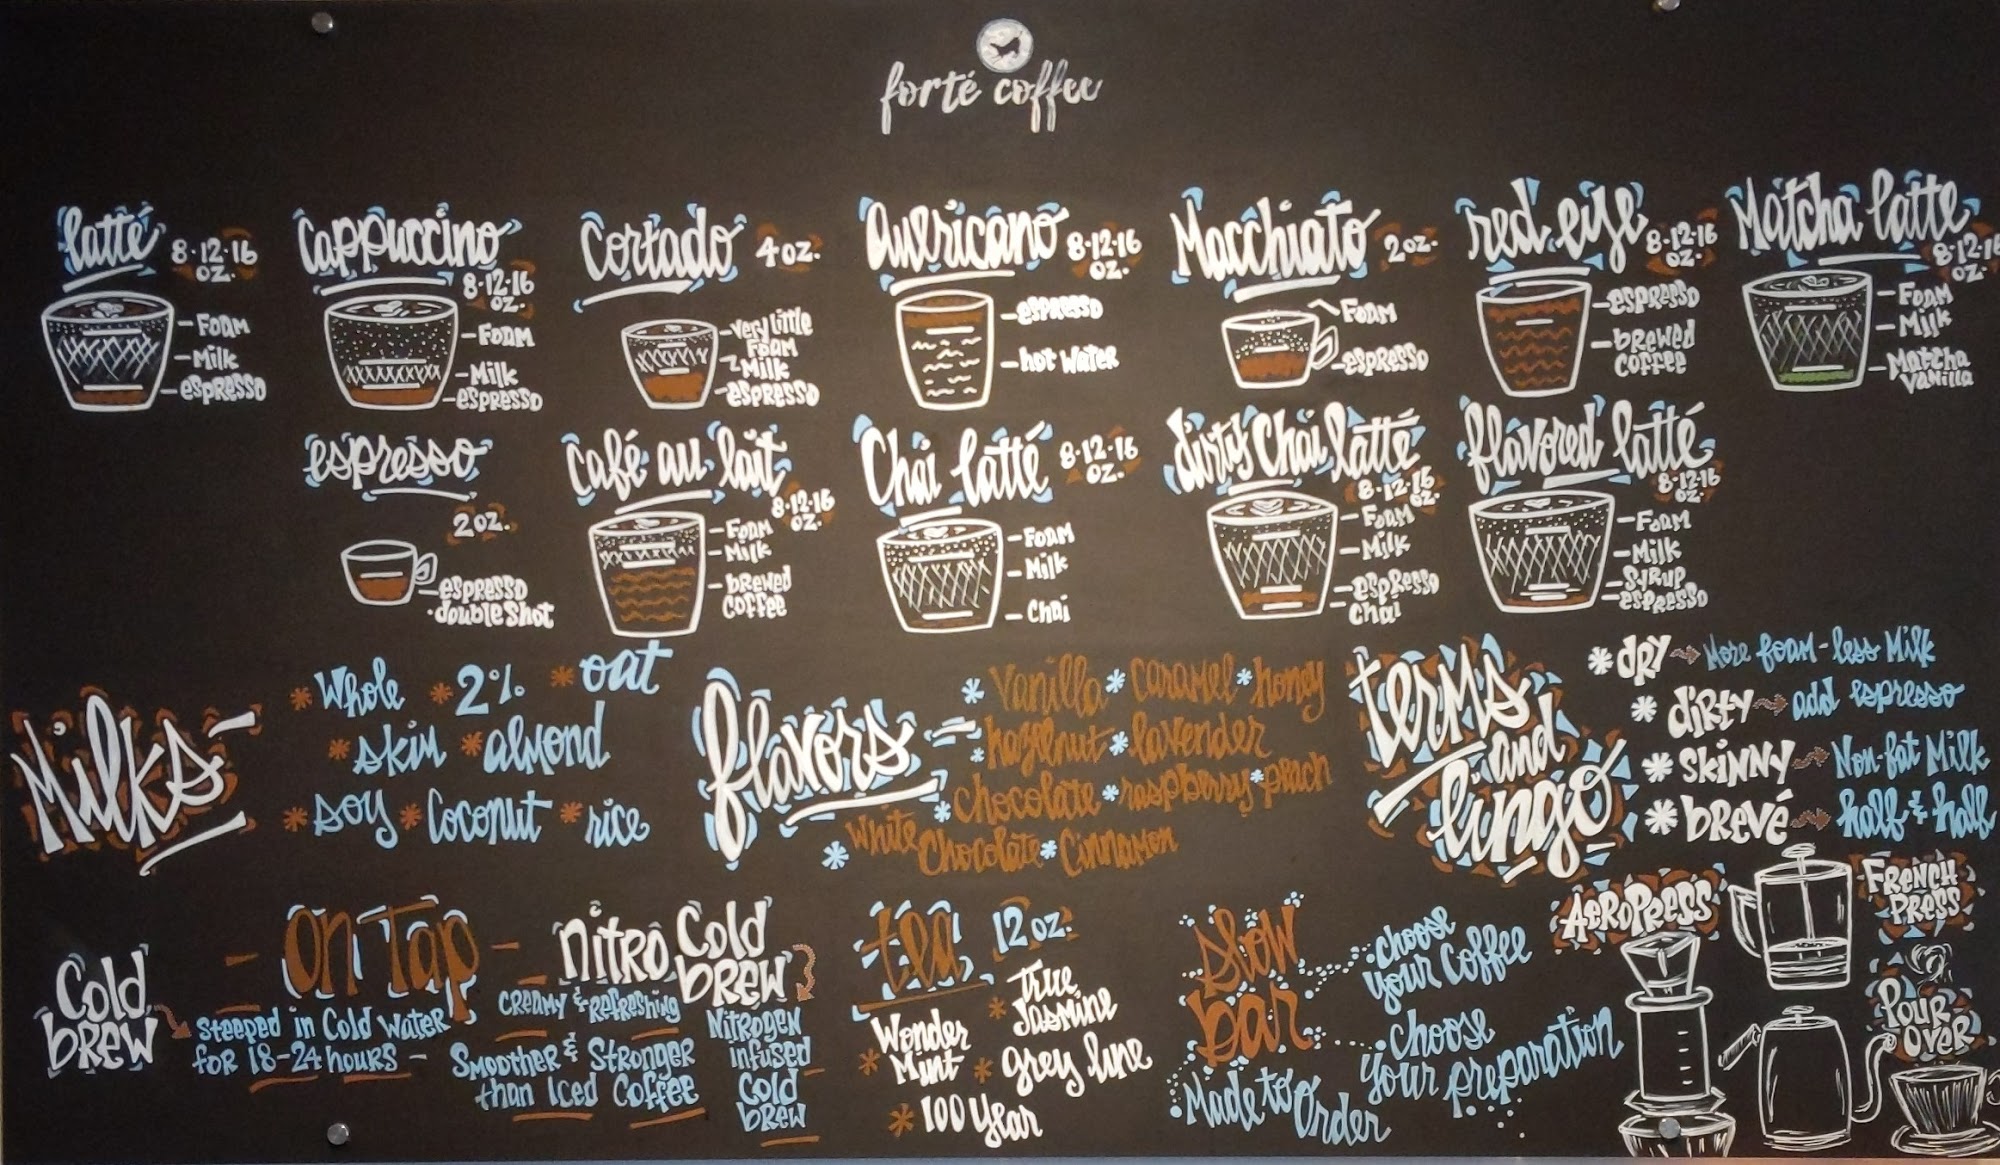 forté coffee
latté 8·12·16 oz.
Foam
Milk
espresso
Cappuccino 8·12·16 oz.
Foam
Milk
espresso
Cortado 4 oz.
very little
Foam
Milk
espresso
Americano 8·12·16 oz.
espresso
hot water
Macchiato 2 oz.
Foam
espresso
red eye 8·12·16 oz.
espresso
brewed
coffee
Matcha latte 8·12·16 oz.
Foam
Milk
Matcha
Vanilla
espresso
2 oz.
espresso
·double shot
café au lait 8·12·16 oz.
Foam
Milk
brewed
coffee
Chai latté 8·12·16 oz.
Foam
Milk
Chai
dirty Chai latté
8·12·16 oz.
Foam
Milk
espresso
Chai
flavored latté
8·12·16 oz.
Foam
Milk
syrup
espresso
Milks
* Whole * 2% * oat
* skim * almond
* soy * Coconut * rice
flavors
* Vanilla * caramel * honey
hazelnut * lavender
* chocolate * raspberry * peach
* White Chocolate * Cinnamon
terms
and
lingo
* DRY → More foam - less Milk
* DIRTY → add espresso
* SKINNY → Non-fat Milk
* BREVÉ → half & half
- On Tap -
Cold
Brew
Steeped in Cold Water
for 18-24 hours -
Nitro Cold
Brew
Creamy & Refreshing
Smoother & Stronger
than Iced Coffee
Nitrogen
infused
Cold
Brew
tea 12 oz.
* True
Jasmine
* Wonder
Mint
* grey line
* 100 Year
slow
bar
Made to Order
choose
your Coffee
choose
your preparation
AeroPress
French
Press
Pour
Over